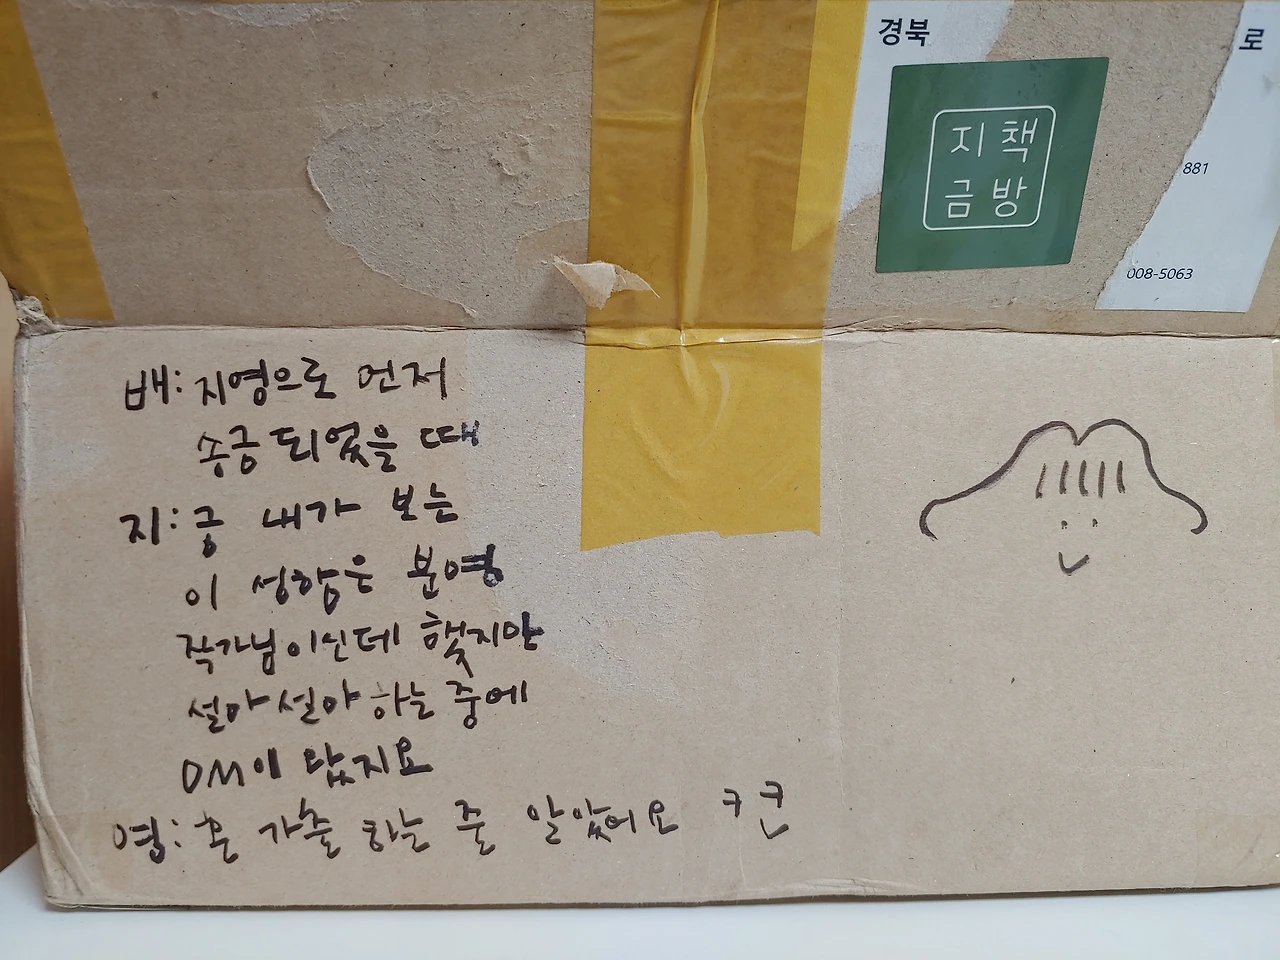 경북
로
지책
금방
881
008-5063
배: 지영으로 먼저
송금 되었을 때
지: 금 내가 보는
이 성함은 분명
작가님이신데 했지만
설마 설마 하는 중에
DM이 왔지요
영: 혼 가출 하는 줄 알았어요 ㅋㅋ